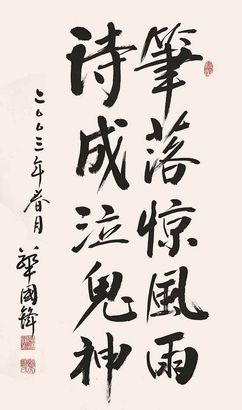 筆落惊風雨
诗成泣鬼神
二〇〇三年春月
華國鋒